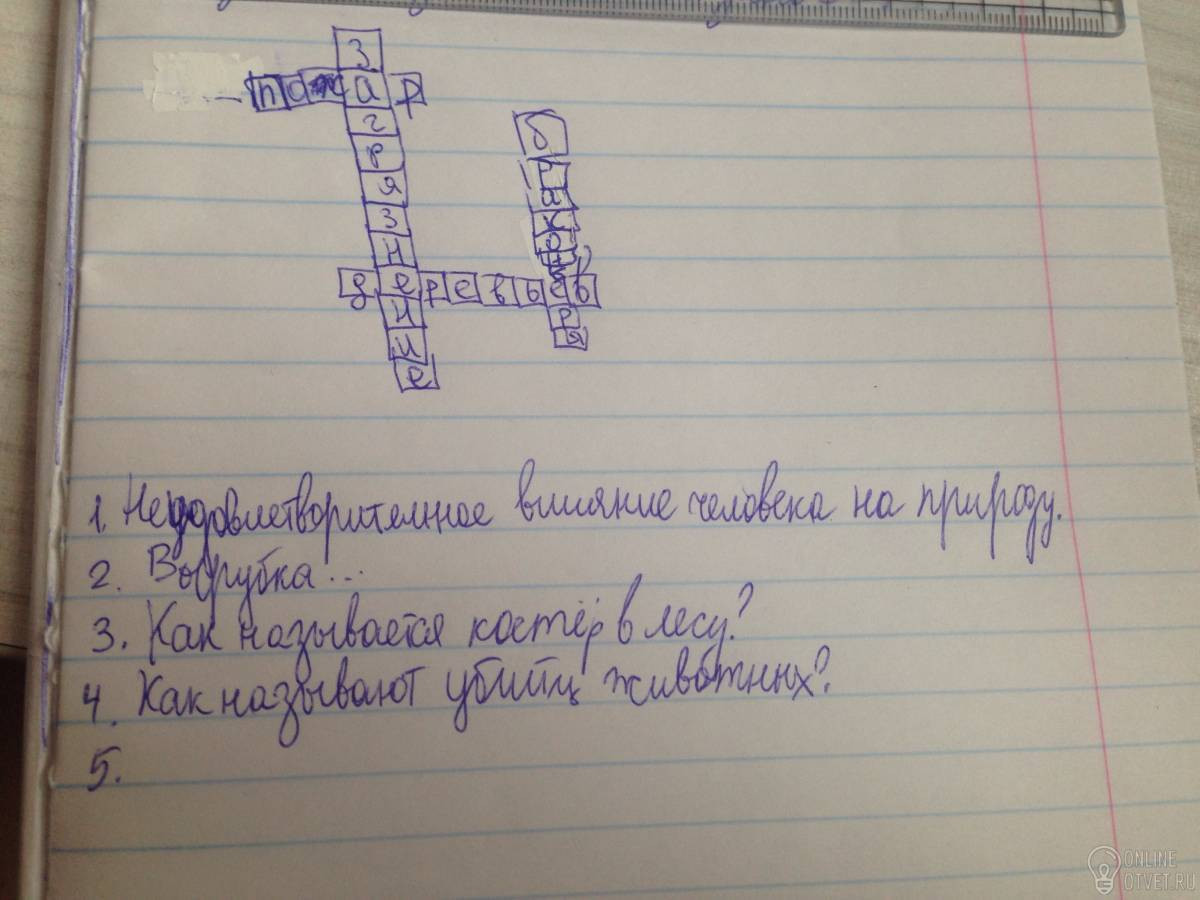 З
пожар
г
р
я
з
н
деревьев
н
и
е
б
р
а
к
о
н
ь
р
я
1. Неудовлетворительное влияние человека на природу.
2. Вырубка...
3. Как называется костёр в лесу?
4. Как называют убийц животных?
5.
ONLINE
OTVET.RU